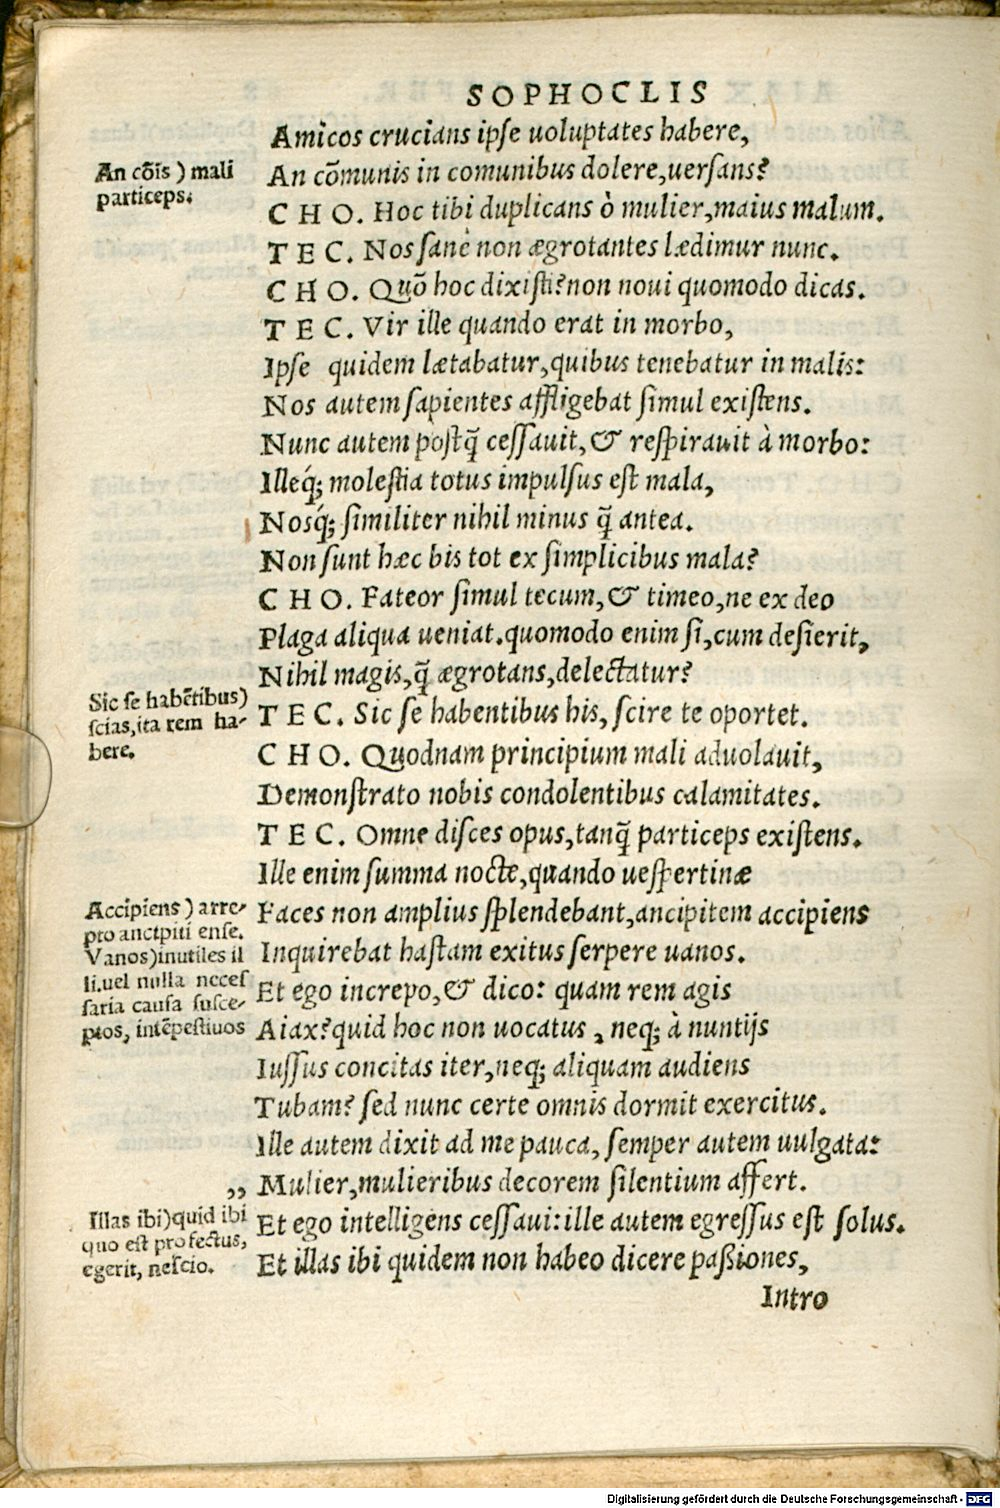 SOPHOCLIS
Amicos crucians ipse uoluptates habere,
An cōis ) mali
particeps.
An cōmunis in comunibus dolere,uersans?
C H O. Hoc tibi duplicans ò mulier,maius malum.
T E C. Nos sanè non ægrotantes lædimur nunc.
C H O. Quō hoc dixisti?non noui quomodo dicas.
T E C. Vir ille quando erat in morbo,
Ipse quidem lætabatur,quibus tenebatur in malis:
Nos autem sapientes affligebat simul existens.
Nunc autem postq̃ cessauit,& respirauit à morbo:
Illeq́; molestia totus impulsus est mala,
Nosq́; similiter nihil minus q̃ antea.
Non sunt hæc bis tot ex simplicibus mala?
C H O. Fateor simul tecum,& timeo,ne ex deo
Plaga aliqua ueniat.quomodo enim si,cum desierit,
Nihil magis,q̃ ægrotans,delectatur?
Sic se habētibus)
scias,ita rem ha-
bere.
T E C. Sic se habentibus his, scire te oportet.
C H O. Quodnam principium mali aduolauit,
Demonstrato nobis condolentibus calamitates.
T E C. Omne disces opus,tanq̃ particeps existens.
Ille enim summa nocte,quando uespertinæ
Accipiens ) arre-
pto ancipiti ense.
Vanos)inutiles il
li,uel nulla neces
saria causa susce-
ptos, intēpestiuos
Faces non amplius splendebant,ancipitem accipiens
Inquirebat hastam exitus serpere uanos.
Et ego increpo,& dico: quam rem agis
Aiax?quid hoc non uocatus , neq; à nuntijs
Iussus concitas iter,neq; aliquam audiens
Tubam? sed nunc certe omnis dormit exercitus.
Ille autem dixit ad me pauca, semper autem uulgata:
„ Mulier,mulieribus decorem silentium affert.
Illas ibi)quid ibi
quo est profectus,
egerit, nescio.
Et ego intelligens cessaui:ille autem egressus est solus.
Et illas ibi quidem non habeo dicere paßiones,
Intro
Digitalisierung gefördert durch die Deutsche Forschungsgemeinschaft - DFG